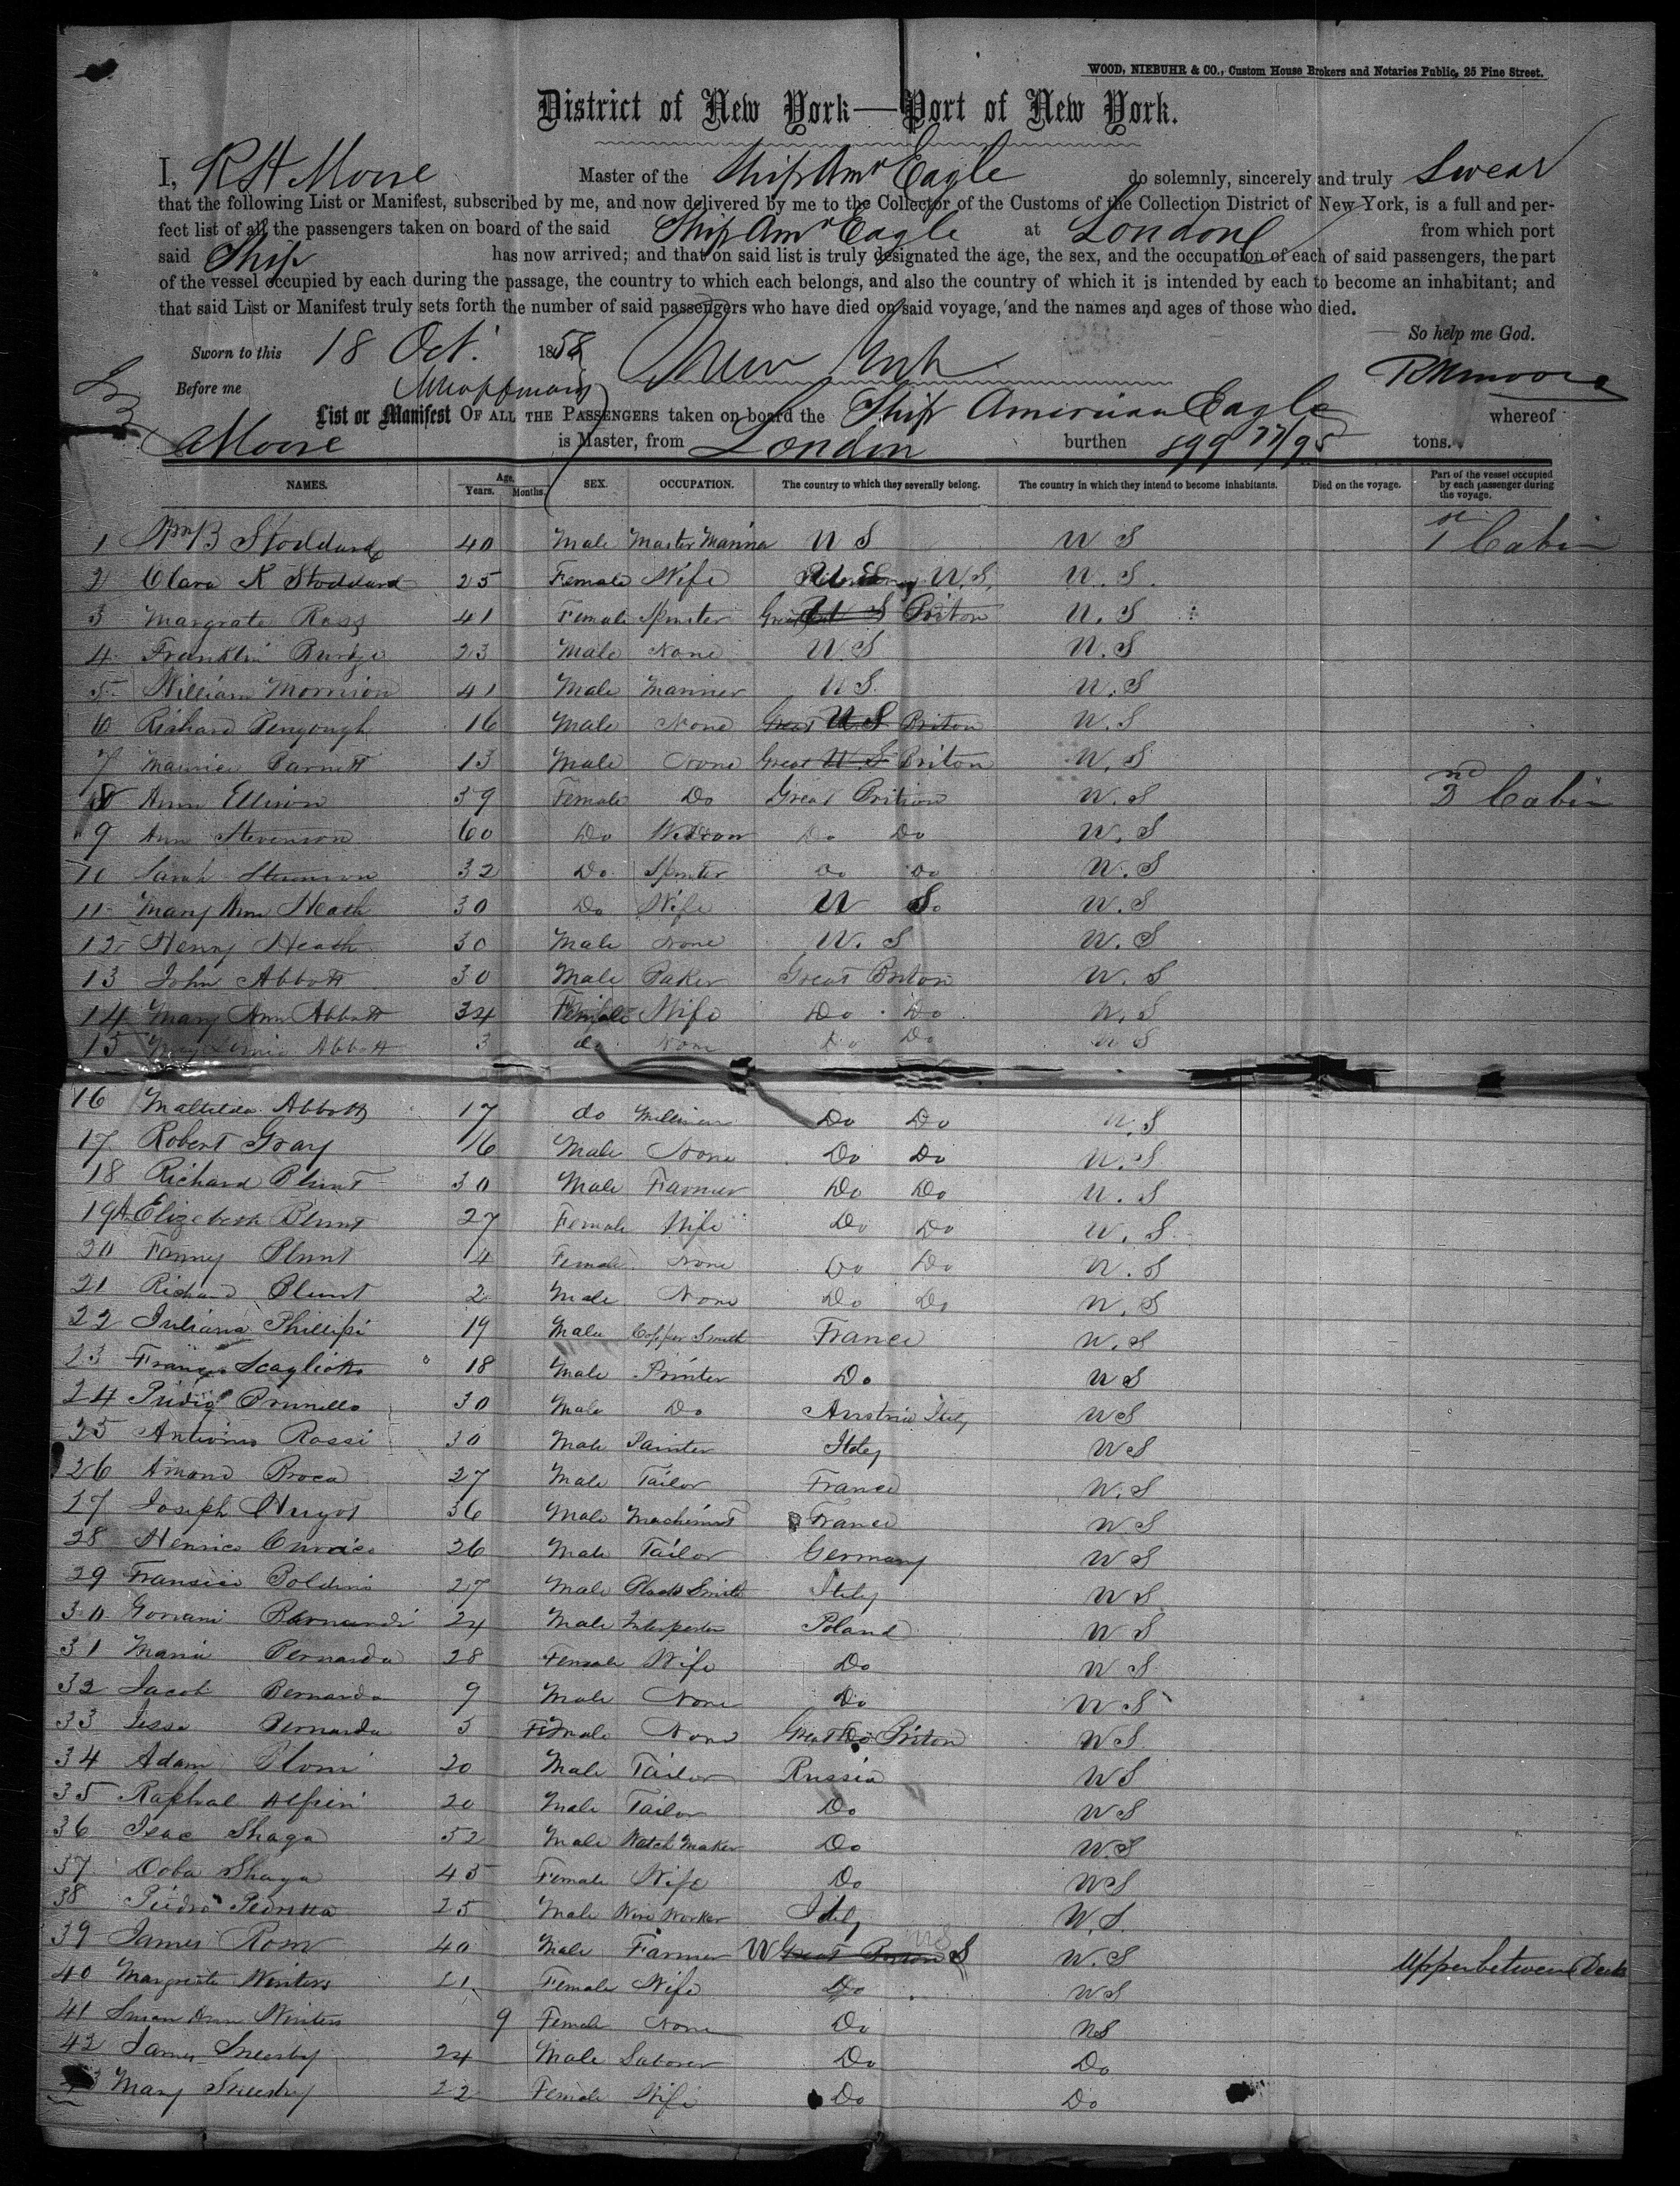 WOOD, NIEBUHR & CO., Custom House Brokers and Notaries Public, 25 Pine Street.
District of New York—Port of New York.
I, R H Moore Master of the Ship Amn Eagle do solemnly, sincerely and truly Swear
that the following List or Manifest, subscribed by me, and now delivered by me to the Collector of the Customs of the Collection District of New York, is a full and per-
fect list of all the passengers taken on board of the said Ship Amn Eagle at London from which port
said Ship has now arrived; and that on said list is truly designated the age, the sex, and the occupation of each of said passengers, the part
of the vessel occupied by each during the passage, the country to which each belongs, and also the country of which it is intended by each to become an inhabitant; and
that said List or Manifest truly sets forth the number of said passengers who have died on said voyage, and the names and ages of those who died.
So help me God.
Sworn to this 18 Oct. 1858 New York
Before me RHMoore
List or Manifest OF ALL THE PASSENGERS taken on board the Ship American Eagle whereof
Moore is Master, from London burthen 899 77/95 tons.
NAMES. Age. Years. Months. SEX. OCCUPATION. The country to which they severally belong. The country in which they intend to become inhabitants. Died on the voyage. Part of the vessel occupied by each passenger during the voyage.
1 Wm B Stoddard 40 Male Master Marina U S U S 1st Cabin
2 Clara K Stoddard 25 Female Wife U.S. U.S.
3 Margrate Ross 41 Female Spinster Great U S Briton U.S
4 Franklin 23 Male None U.S U.S
5 William Morrison 41 Male Mariner U S. U.S
6 Richard Penyough 16 Male None Great U.S Briton U.S
7 Maurice Barnett 13 Male None Great U.S Briton U.S
8 Ann Ellison 39 Female Do Great Brition U.S 2nd Cabin
9 Ann Stevenson 60 Do Widow Do Do U.S
10 Sarah Stevenson 32 Do Spinster Do Do U.S
11 Mary Ann Heath 30 Do Wife U S U.S
12 Henry Heath 30 Male None U.S U.S
13 John Abbott 30 Male Baker Great Briton U.S
14 Mary Ann Abbott 34 Female Wife Do Do U.S
15 Abbott 3 do None Do Do U S
16 Matilda Abbott 17 do Milliner Do Do U.S
17 Robert Gray 16 Male None Do Do U.S
18 Richard Blunt 30 Male Farmer Do Do U.S
19 Elizebeth Blunt 27 Female Wife Do Do U.S
20 Fanny Blunt 4 Female None Do Do U.S
21 Richard Blunt 2 Male None Do Do U.S
22 Juliana Phillipi 19 Male Copper Smith France U.S
23 Scagliotto 18 Male Printer Do U S
24 Brunello 30 Male Do Austria Itely U S
25 Antionio Rossi 30 Male Painter Itely U S
26 Amond Broca 27 Male Tailor France U.S
27 Joseph Hugot 36 Male Machinist France U.S
28 Henrico 26 Male Tailor Germany U S
29 Fransico Boldini 27 Male Black Smith Itely U S
30 Bernardi 24 Male Poland U S
31 Maria Bernarda 28 Female Wife Do U S
32 Jacob Bernarda 9 Male None Do U S
33 Jessa Bernarda 3 Female None Great Do Briton U.S
34 Adam 20 Male Tailor Russia U S
35 Raphal Alfieri 20 Male Tailor Do U S
36 Isac Shaga 52 Male Watch Maker Do U.S
37 Doba Shaga 45 Female Wife Do U S
38 Piedro Pedretta 25 Male Wire Worker Itely U.S.
39 James Rosw 40 Male Farmer U Great Briton S U.S Upper between Decks
40 Margreate Winters 21 Female Wife Do U S
41 Susan Ann Winters 9 Female None Do U S
42 James Sneesby 24 Male Laborer Do Do
43 Mary Sneesby 22 Female Wife Do Do